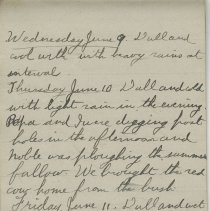 Wednesday June 9 Dull and
cool with with heavy rains at
interval
Thursday June 10 Dull and cold
with light rain in the evening.
Papa and I were digging post
holes in the afternoon and
Noble was ploughing the summer
fallow. We brought the red
cow home from the bush
Friday June 11. Dull and wet